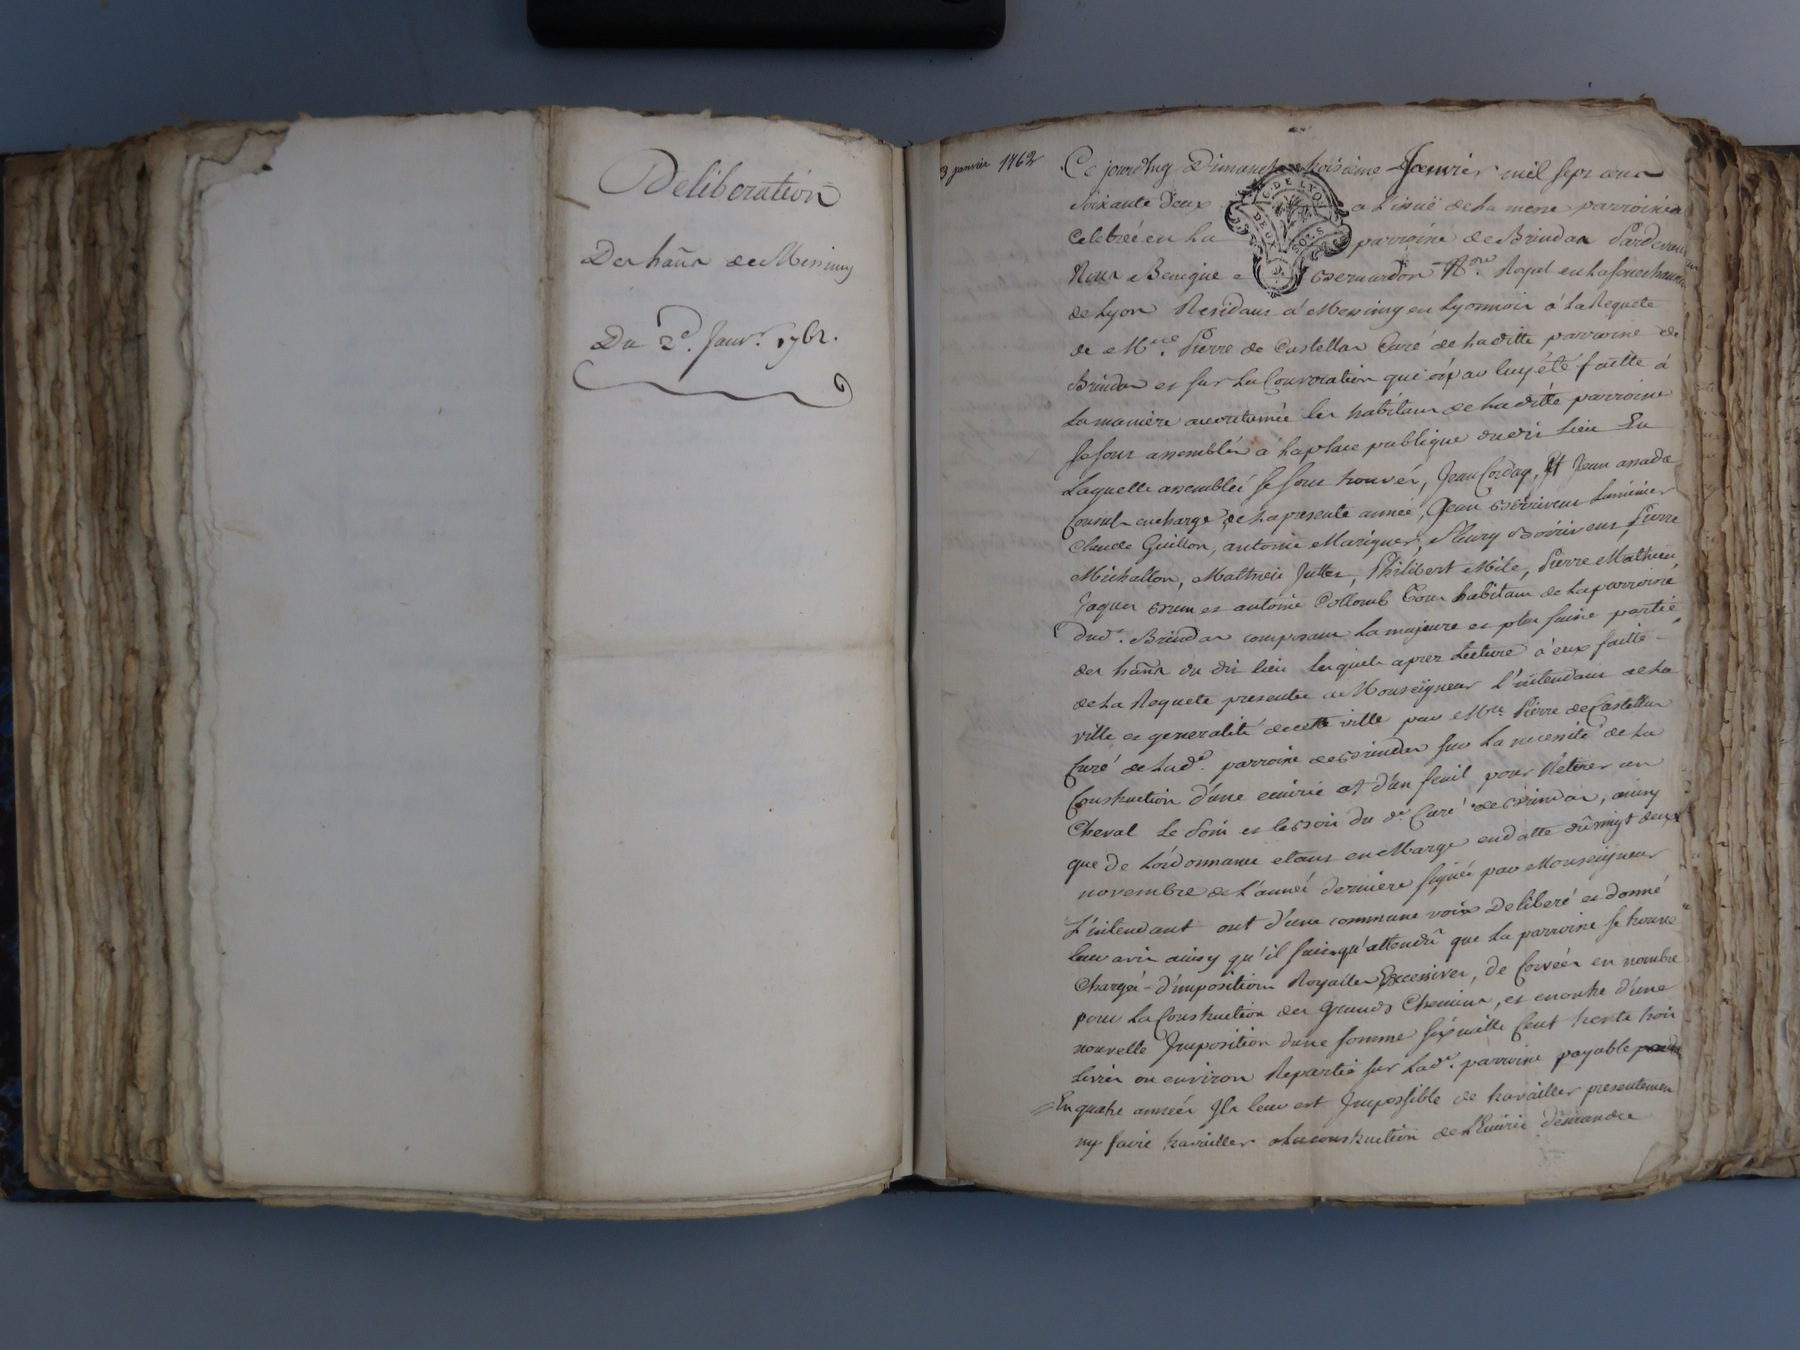 Deliberation
Des hañs de Messimy
Du 2e. Janvr. 1762.
3 janvier 1762
Ce jourdhuy Dimanche troisieme Janvier mil sept cens
soixante deux a L'issuë de La messe parroissialle
Celebrée en La parroisse de Brindas Pardevant
Nous Benigne Bernardon Nre. Royal en La senechaussée
de Lyon Residant á Messimy en Lyonnois á La Requete
de Mre. Pierre de Castellas Curé de Laditte parroisse de
Brindas et sur La Convocation qui a luy été faitte á
La maniere accoutumée les habitans de Laditte parroisse
se sont assemblés á La place publique dudit Lieu En
Laquelle assemblée se sont trouvés, Jean Corday, Et Jean
Consuls en charge de La presente année, Jean Luminier
Claude Guillon, antoine Fleury Pierre
Michallon, Mathieu Philibert Pierre Mathieu
Jaques et antoine Collomb Tous habitans de La parroisse
dud. Brindas composant La majeure et plus saine partie
des hañs du dit lieu Lesquels apres Lecture á eux faitte
de La Requete presentée a Monseigneur L'intendant de La
ville et generalité de cette ville par Mre. Pierre de Castellas
Curé de Lade. parroisse de Brindas sur La necessité de La
Construction d'une ecurie et d'un fenil pour Retirer un
Cheval Le foin et du dt. Curé de Brindas, ainsy
que de Lordonnance etant en Marge en datte du vingt deux
novembre de L'année derniere signée par Monseigneur
L'intendant ont d'une commune voix Deliberé et donné
Leur avis ainsy qu'il suit, qu'attendu que La parroisse se trouve
Chargée d'impositions Royalles Excessives, de Corvées en nombre
pour La Construction des Grands Chemins, et en outre d'une
nouvelle Imposition dune somme six mille Cent trente trois
Livres ou environ Repartie sur Lade. parroisse payable
En quatre années Il leur est Impossible de travailler presentement
ny faire travailler a La construction de L'Ecurie demandée